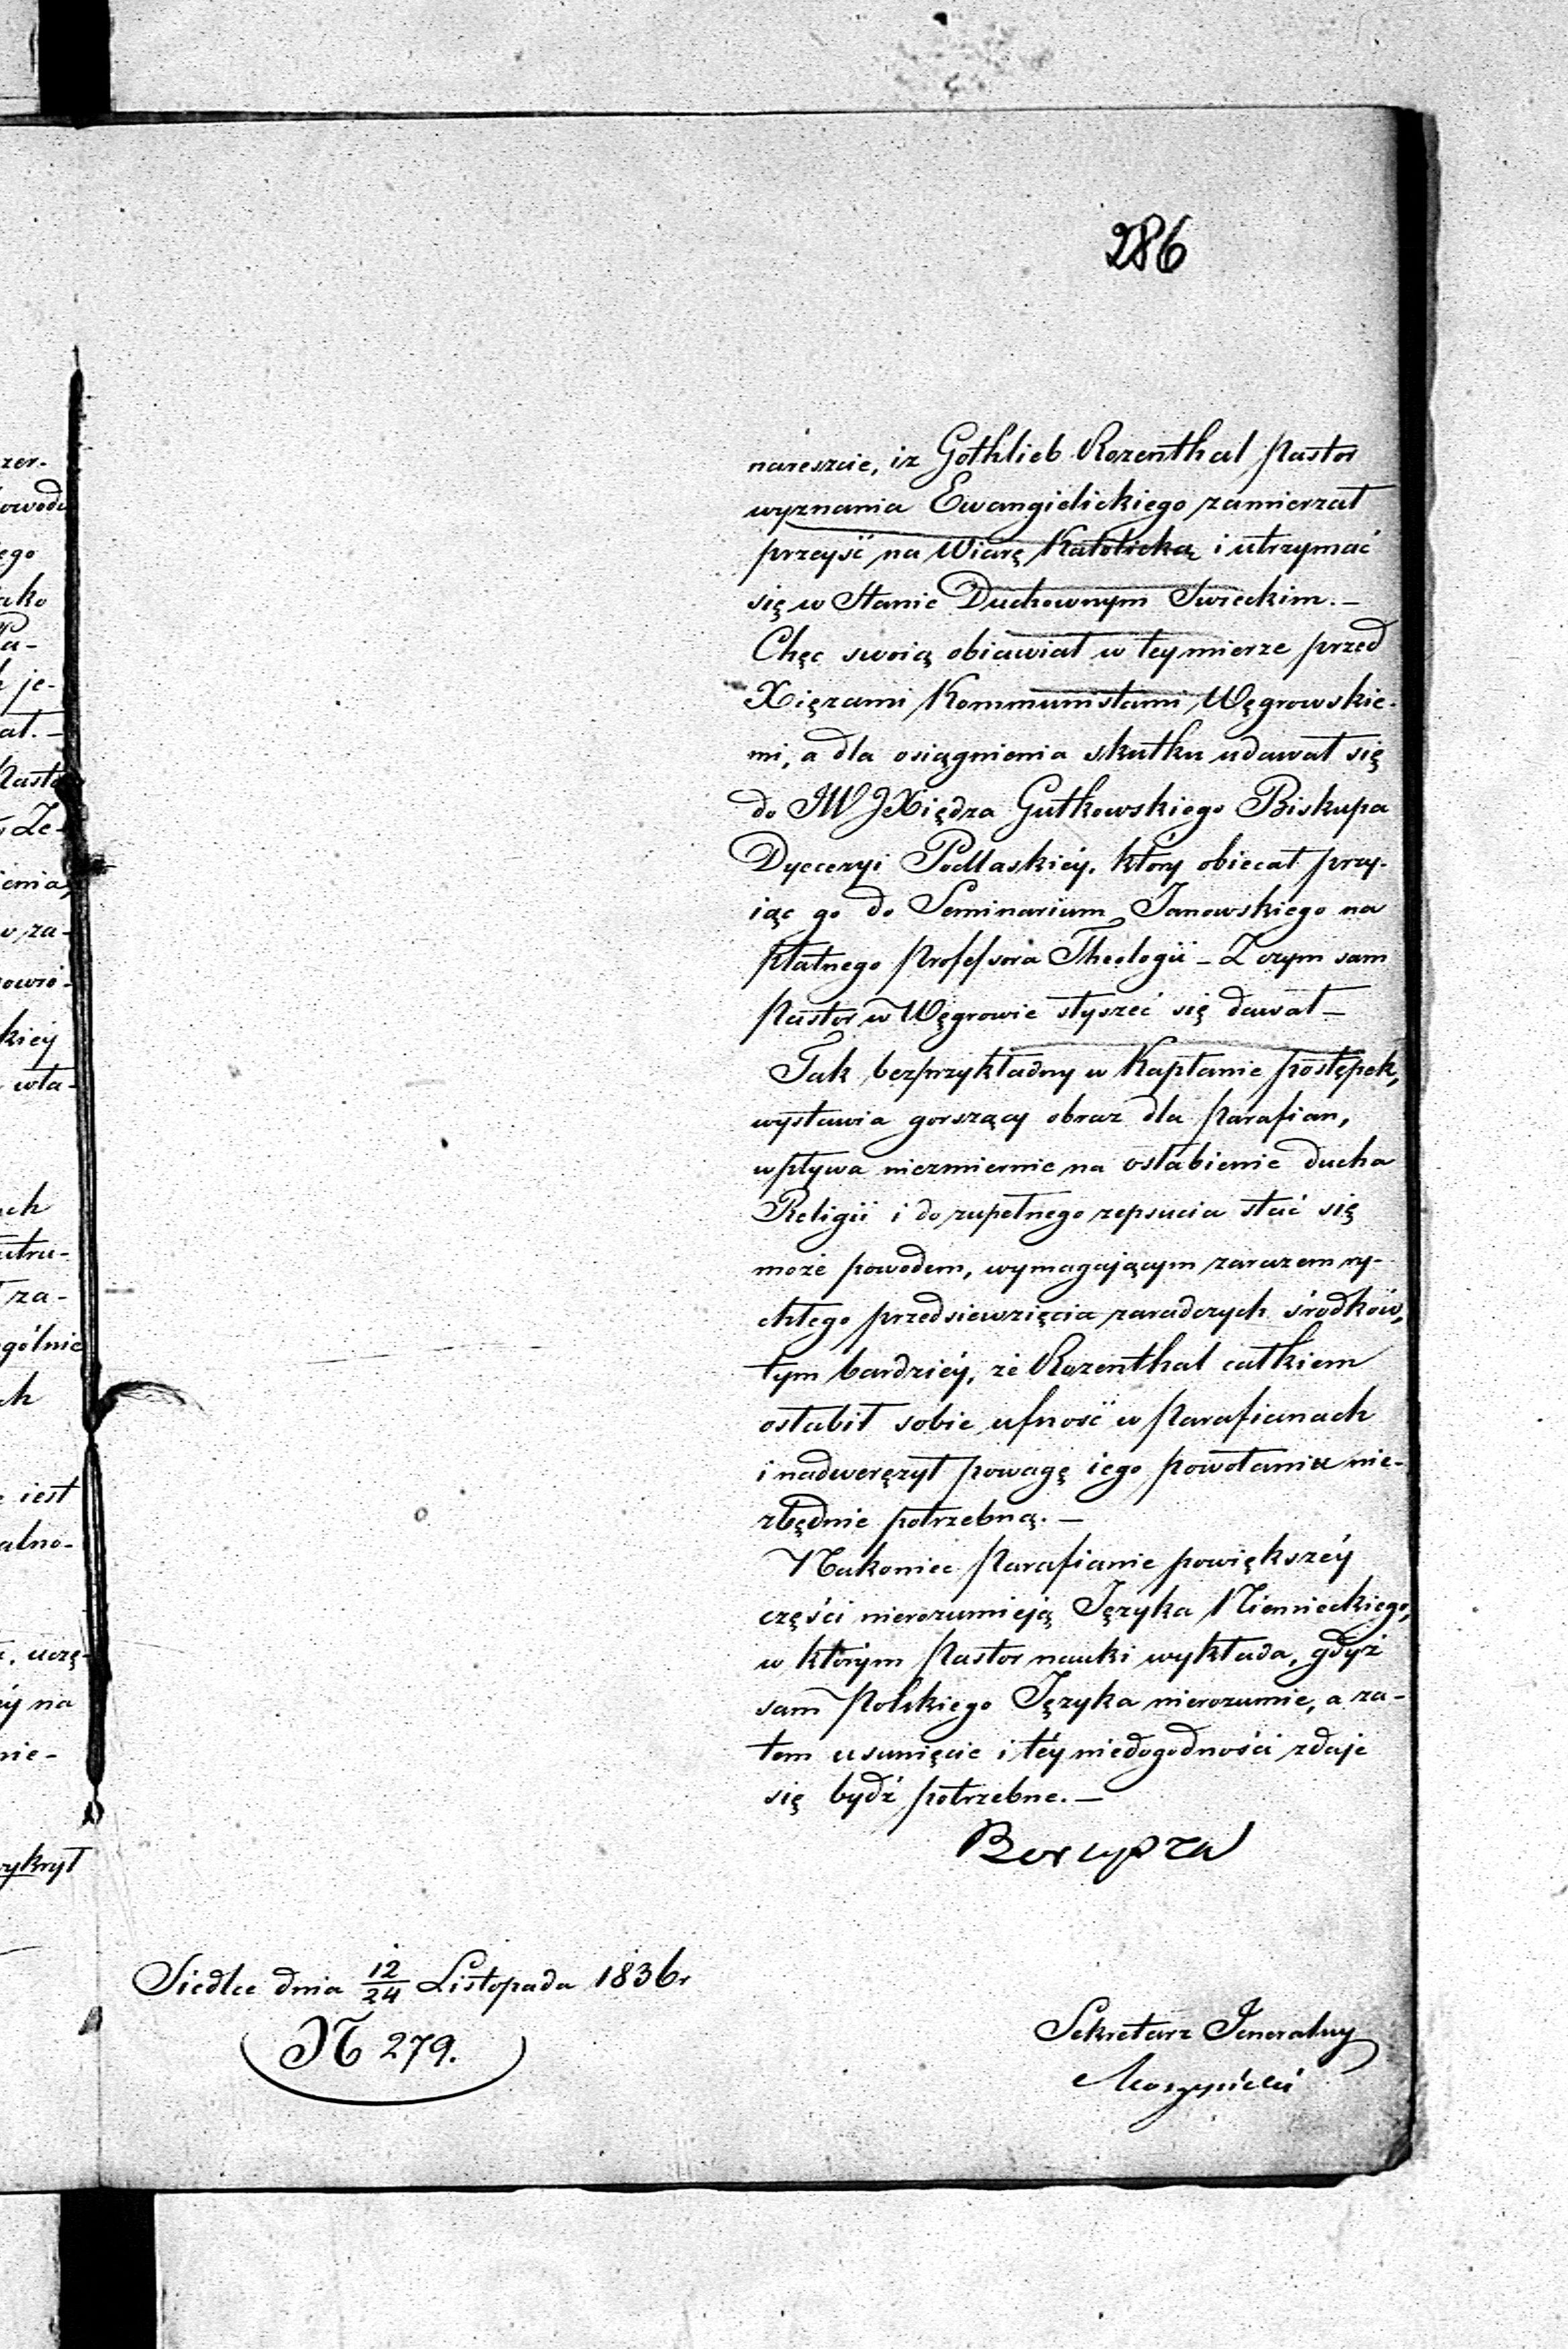 286
nareszcie, iż Gotklieb Rozenthal Pastor
wyznania Ewangielickiego zamierzał
przeyść na Wiarę Katolicką i utrzymać
się w Stanie Duchownym Swieckim. —
Chęc swoią obiawiał w tey mierze przed
Xiężami Kommunistami Węgrowskie-
mi, a dla osiągnienia skutku udawał się
do JW JXiędza Gutkowskiego Biskupa
Dyecezyi Podlaskiéy, który obiecał przy-
iąc go do Seminarium Janowskiego na
płatnego Professora Theologii — Z czym sam
Pastor w Węgrowie słyszeć się dawał —
Tak bezprzykładny w Kapłanie postępek,
wystawia gorszący obraz dla Parafian,
wpływa niezmiernie na osłabienie ducha
Religii i do zupełnego zepsucia stać się
może powodem, wymagającym zarazem ry-
chłego przedsiewzięcia zaradczych środków,
tym bardziéy, że Rozenthal całkiem
osłabił sobie ufność w Parafianach
i nadwerężył powagę iego powołaniu nie-
zbędnie potrzebną. —
Nakoniec Parafianie powiększéy
części nierozumieją Języka Niemieckiego,
w którym Pastor nauki wykłada, gdyż
sam Polskiego Języka nierozumie, a za-
tem usunięcie i téy niedogodności zdaje
się bydź potrzebne. —
Siedlce dnia 12/24 Listopada 1836r
N 279.
Sekretarz Jeneralny